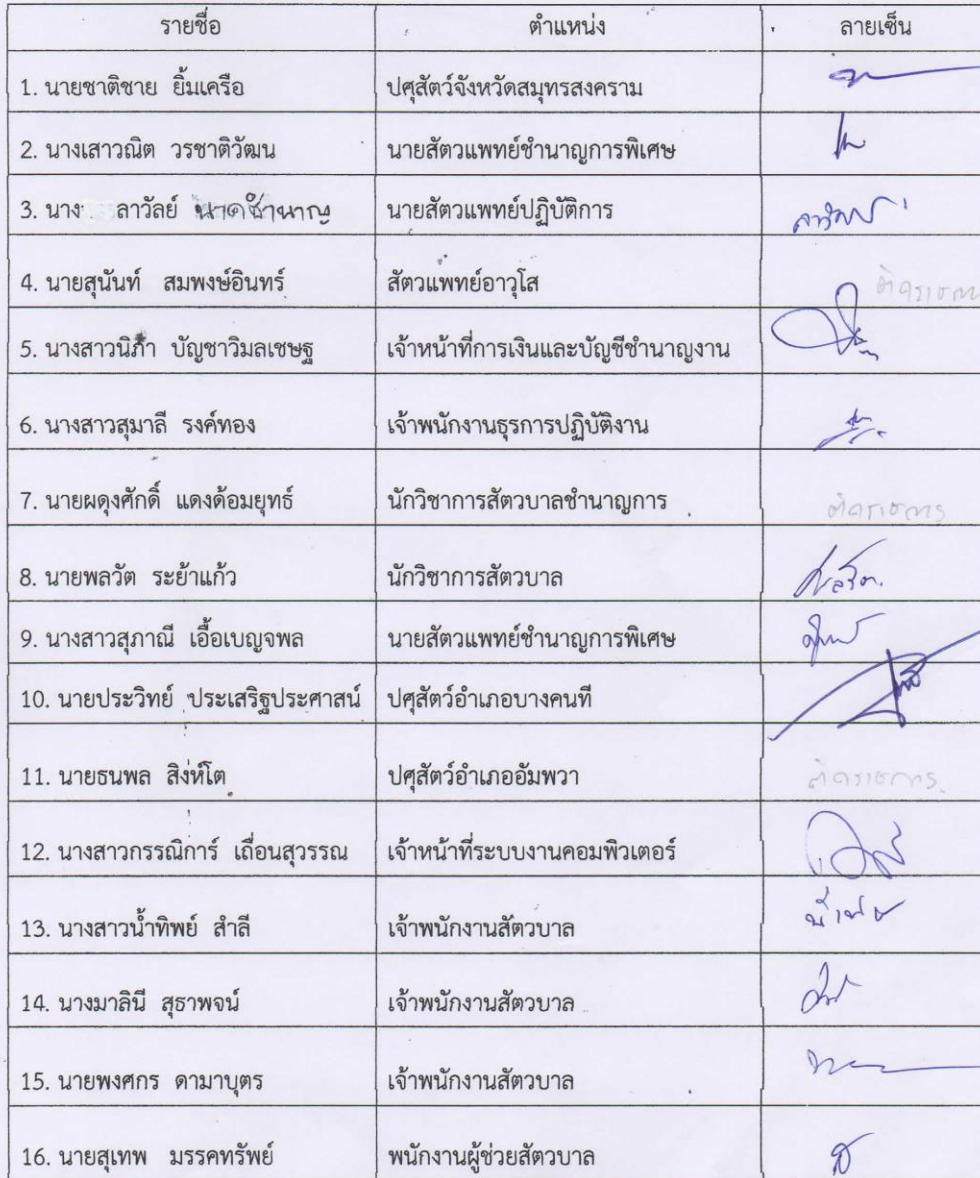 รายชื่อ ตำแหน่ง ลายเซ็น
1. นายชาติชาย ยิ้มเครือ ปศุสัตว์จังหวัดสมุทรสงคราม
2. นางเสาวณิต วรชาติวัฒน นายสัตวแพทย์ชำนาญการพิเศษ
3. นาง ลาวัลย์ นาคชำนาญ นายสัตวแพทย์ปฏิบัติการ ลาวัลย์
4. นายสุนันท์ สมพงษ์อินทร์ สัตวแพทย์อาวุโส ติดราชการ
5. นางสาวนิภา บัญชาวิมลเชษฐ เจ้าหน้าที่การเงินและบัญชีชำนาญงาน
6. นางสาวสุมาลี รงค์ทอง เจ้าพนักงานธุรการปฏิบัติงาน
7. นายผดุงศักดิ์ แดงด้อมยุทธ์ นักวิชาการสัตวบาลชำนาญการ ติดราชการ
8. นายพลวัต ระย้าแก้ว นักวิชาการสัตวบาล
9. นางสาวสุภาณี เอื้อเบญจพล นายสัตวแพทย์ชำนาญการพิเศษ
10. นายประวิทย์ ประเสริฐประศาสน์ ปศุสัตว์อำเภอบางคนที
11. นายธนพล สิงห์โต ปศุสัตว์อำเภออัมพวา ติดราชการ
12. นางสาวกรรณิการ์ เถื่อนสุวรรณ เจ้าหน้าที่ระบบงานคอมพิวเตอร์
13. นางสาวน้ำทิพย์ สำลี เจ้าพนักงานสัตวบาล
14. นางมาลินี สุธาพจน์ เจ้าพนักงานสัตวบาล
15. นายพงศกร ดามาบุตร เจ้าพนักงานสัตวบาล
16. นายสุเทพ มรรคทรัพย์ พนักงานผู้ช่วยสัตวบาล